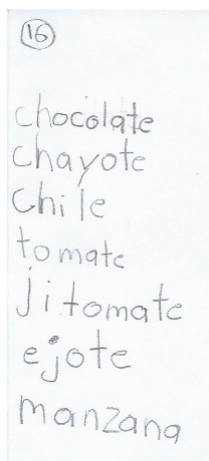 16
chocolate
chayote
chile
tomate
jitomate
ejote
manzana